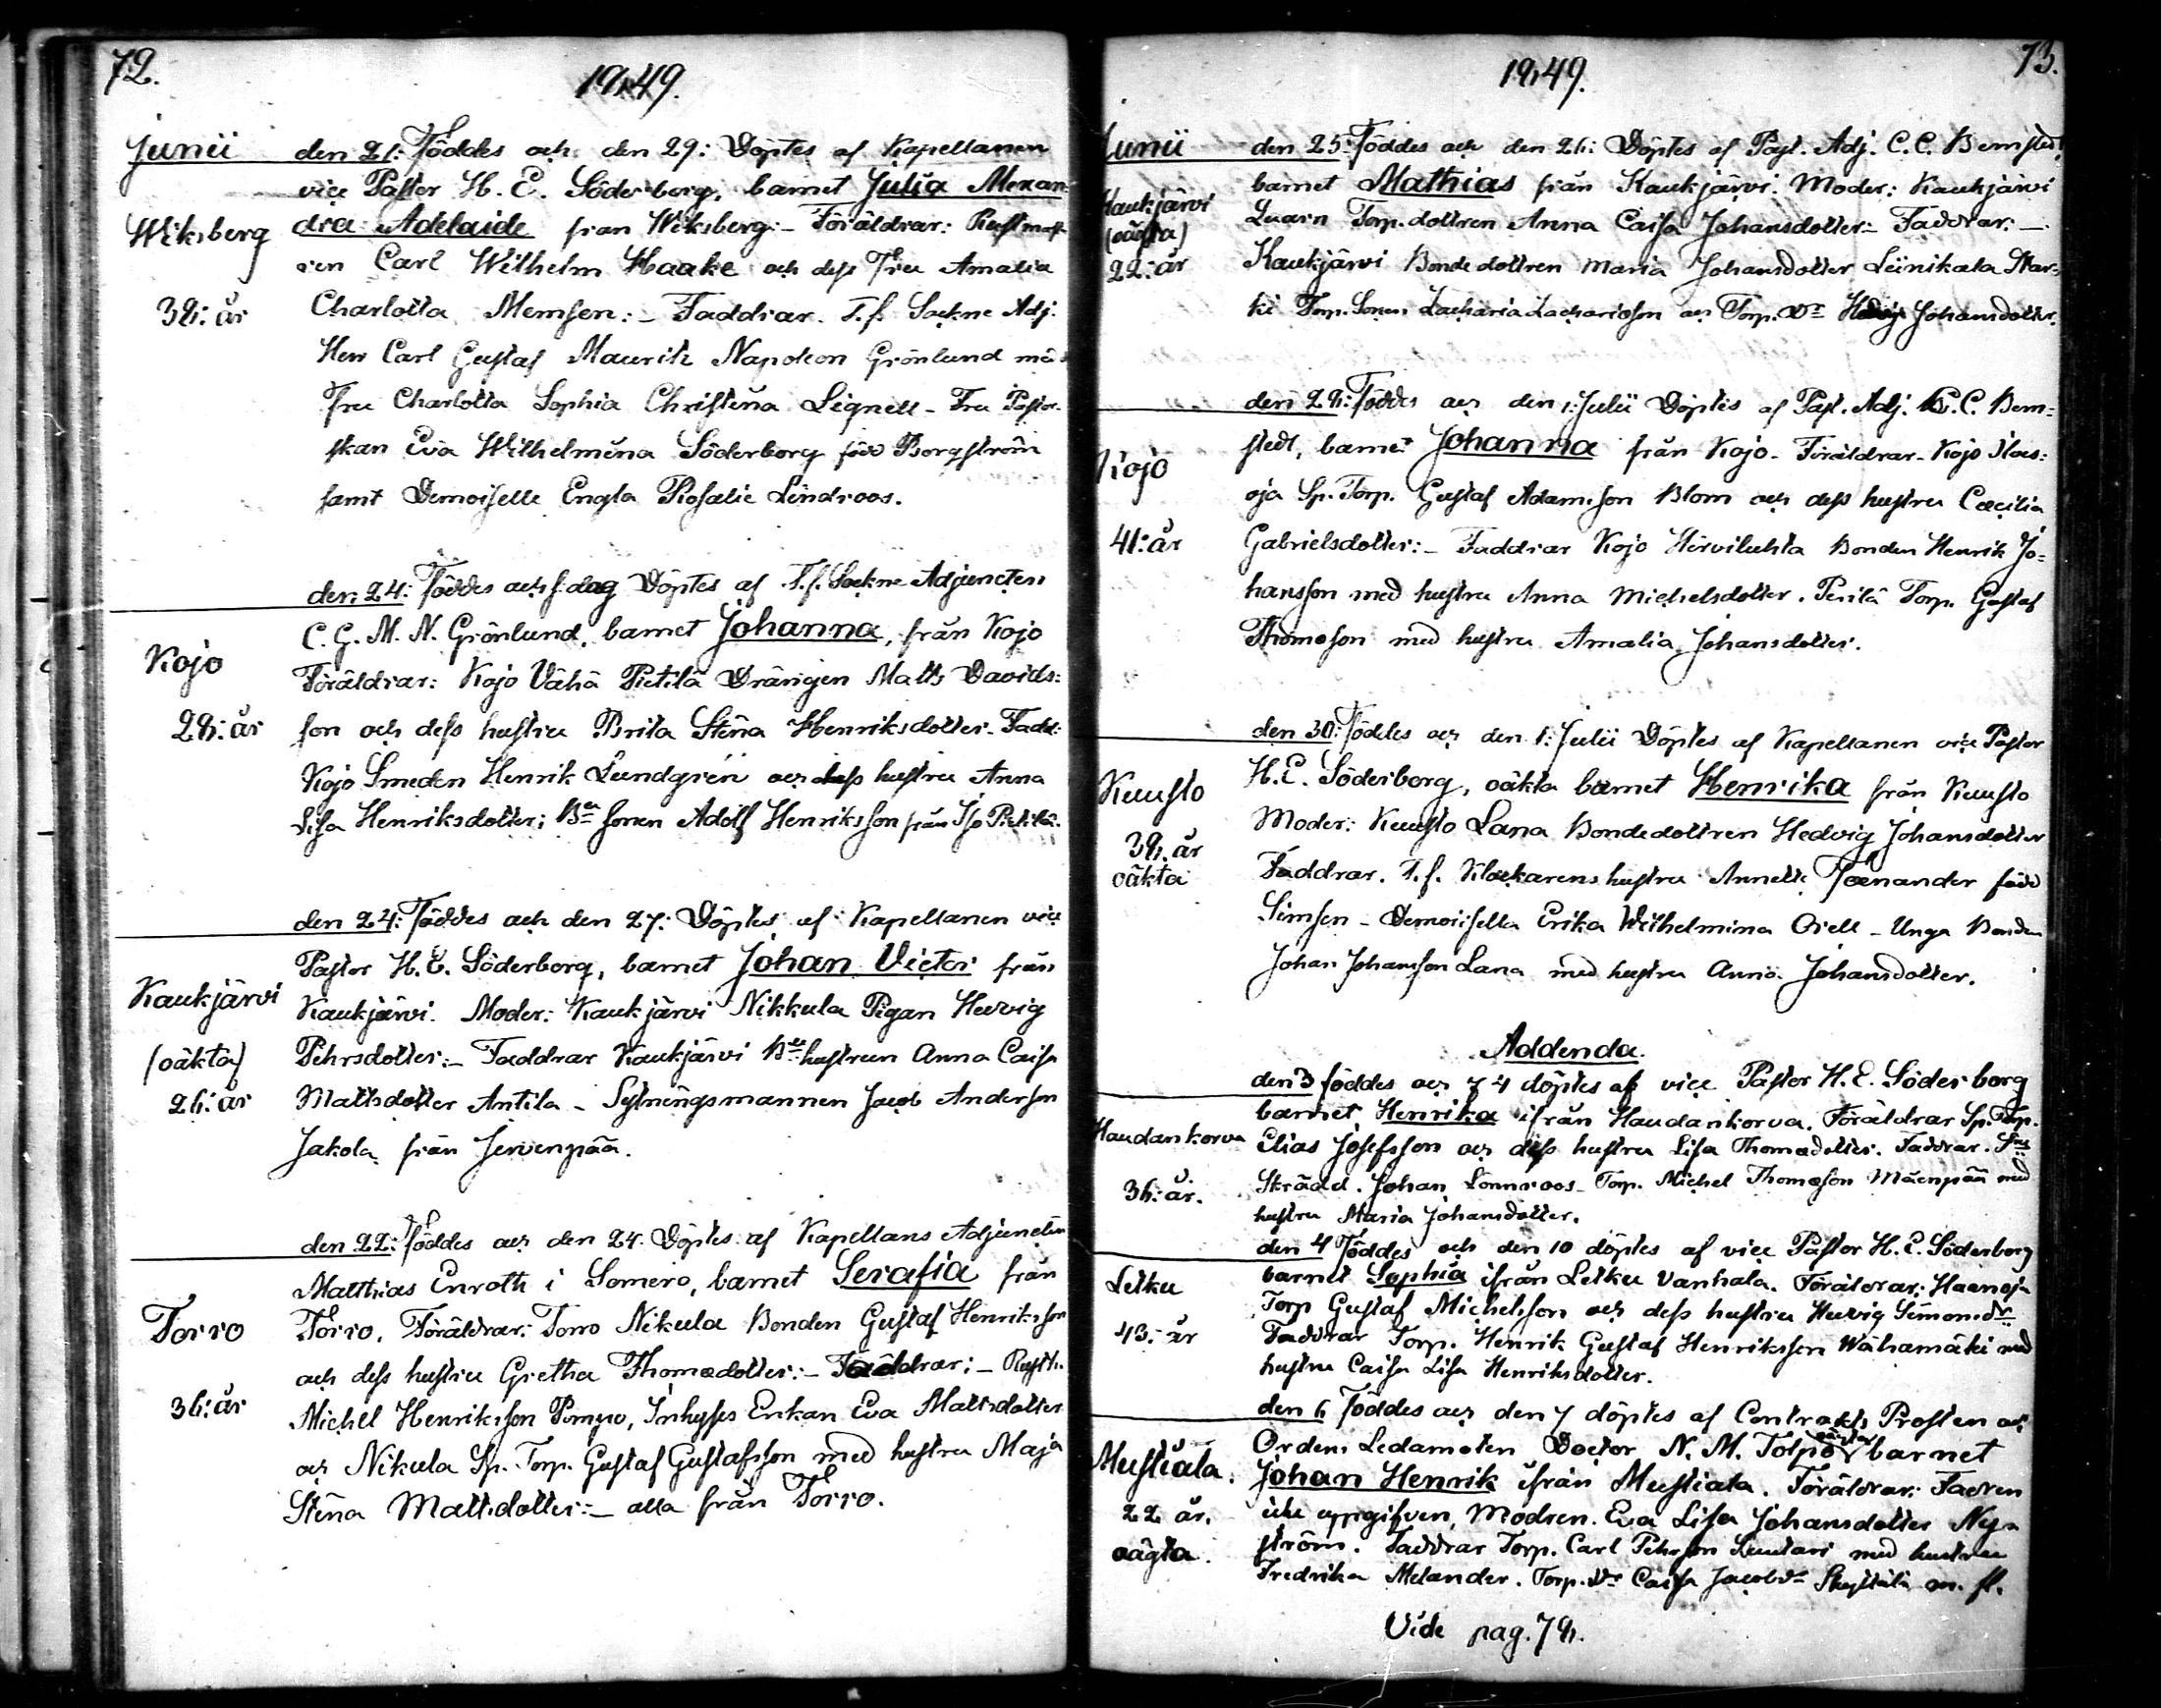 72.
1849.
Junii
den 21: Föddes och den 29: Döptes af Kapellanen
vice Pastor H. E. Söderborg, barnet Julia Alexan-
Wiksberg
dra Adelaide från Wiksberg:- Föräldrar:
Carl Wilhelm Haake och dess Fru Amalia
38: år
Charlotta Memsen:- Faddrar. T.f. Sockne Adj.
Herr Carl Gustaf Mauritz Napoleon Grönlund med
Fru Charlotta Sophia Christina Lignell - Fru Pastor-
skan Eva Wilhelmina Söderborg född Borgström
samt Demoiselle Engla Rosalie Lindroos.
den 24: Föddes och s. dag Döptes af T.f. Sockne Adjuncten
C. G. M. N. Grönlund, barnet Johanna, från Kojo
Kojo
Föräldrar: Kojo Vähä Pietilä Drängen Matts Davids-
28: år
son och dess hustru Brita Stina Henriksdotter. Fadd:
Kojo Smeden Henrik Lundgrén och dess hustru Anna
Lisa Henriksdotter; Bde sonen Adolf Henriksson från Iso Pietilä.
den 24: Föddes och den 27: Döptes af Kapellanen vice
Pastor H. E. Söderborg, barnet Johan Victor från
Kaukjärvi
Kaukjärvi. Moder: Kaukjärvi Nikkula Pigan Hedvig
(oäkta)
Pehrsdotter:- Faddrar Kaukjärvi Bde hustrun Anna Caisa
26: år
Mattsdotter Antila - Sytningsmannen Jacob Andersson
Jakola från Jervenpää.
den 22: föddes och den 24. Döptes af Kapellans Adjuncten
Matthias Enroth i Somero, barnet Serafia från
Torro
Torro. Föräldrar: Torro Nikula Bonden Gustaf Henriksson
och dess hustru Gretha Thomædotter:- Faddrar:- Rusth.
36: år
Michel Henriksson Pompo, Inhyses Enkan Eva Mattsdotter
och Nikula Sp. Torp. Gustaf Gustafsson med hustru Maja
Stina Mattsdotter:- alla från Torro.
73.
1849.
Junii
den 25: föddes och den 26: Döptes af Past. Adj. C. C. Bernstedt,
Kaukjärvi
barnet Mathias från Kaukjärvi. Moder: Kaukjärvi
(oägta)
Torp. dottren Anna Caisa Johansdotter:- Faddrar:-
22: år
Kaukjärvi Bonde dottren Maria Johansdotter Liinikala
Torp. Sonen Zacharia Zachariasson och Torp. Dr Hedvig Johansdotter.
den 28: föddes och den 1: Julii Döptes af Past. Adj. C. C. Bern-
stedt, barnet Johanna från Kojo. Föräldrar. Kojo
Kojo
oja Sp. Torp. Gustaf Adamsson Blom och dess hustru Cæcilia
41: år
Gabrielsdotter:- Faddrar Kojo Hirviluhta Bonden Henrik Jo-
hansson med hustru Anna Michelsdotter. Torp. Gustaf
Thomasson med hustru Amalia Johansdotter.
den 30: föddes och den 1: Julii Döptes af Kapellanen vice Pastor
Kuusto
H. E. Söderborg, oäkta barnet Henrika från Kuusto
38: år
Moder: Kuusto Lana Bondedottren Hedvig Johansdotter
oäkta
Faddrar. T.f. Klockarens hustru Annette född
Simsen - Demoisella Erika Wilhelmina - Unga Bonden
Johan Johansson Lana med hustru Anna Johansdotter.
Addenda.
den 3 föddes och 4 döptes af vice Pastor H. E. Söderborg
barnet Henrika ifrån Haudankorva. Föräldrar Sp. Torp.
Haudankorva
Elias Josefsson och dess hustru Lisa Thomædotter. Faddrar.
36: år.
Skrädd. Johan Lönnroos - Torp. Michel Thomasson Mäenpää med
hustru Maria Johansdotter.
den 4 Föddes och den 10 döptes af vice Pastor H. E. Söderborg
Letku
barnet Sophia ifrån Letku Vanhala. Föräldrar: Haanoja
Torp Gustaf Michelsson och dess hustru Hedvig Simonsdr
43: år
Faddrar Torp. Henrik Gustaf Henriksson Wähämäki med
hustru Caisa Lisa Henriksdotter.
den 6 föddes och den 7 döptes af Contrakts Prosten och
Ordens Ledamoten Doctor N. M. Tolpo oäkta barnet
Mustiala.
Johan Henrik ifrån Mustiala. Föräldrar: Fadren
22 år.
icke uppgifven, Modren. Eva Lisa Johansdotter Ny-
oägta.
ström. Faddrar Torp. Carl Pehrsson Suutari med hustru
Fredrika Melander. Torp. Dr Caisa Jacobsdr m. fl.
Vide pag. 78.